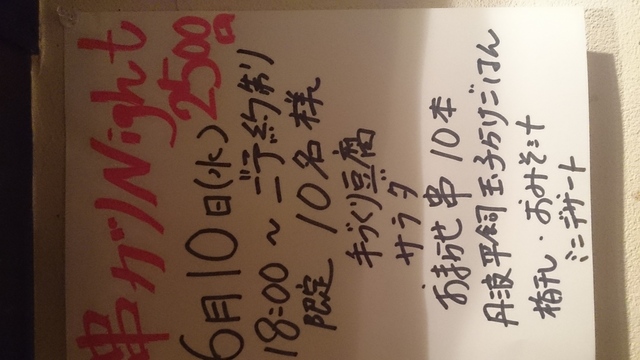 串カツNight
2500円
6月10日(水)
18:00〜ご予約制
限定 10名様
手づくり豆腐
サラダ
おまかせ串 10本
丹波平飼玉子かけごはん
梅干・おみそ汁
ミニデザート